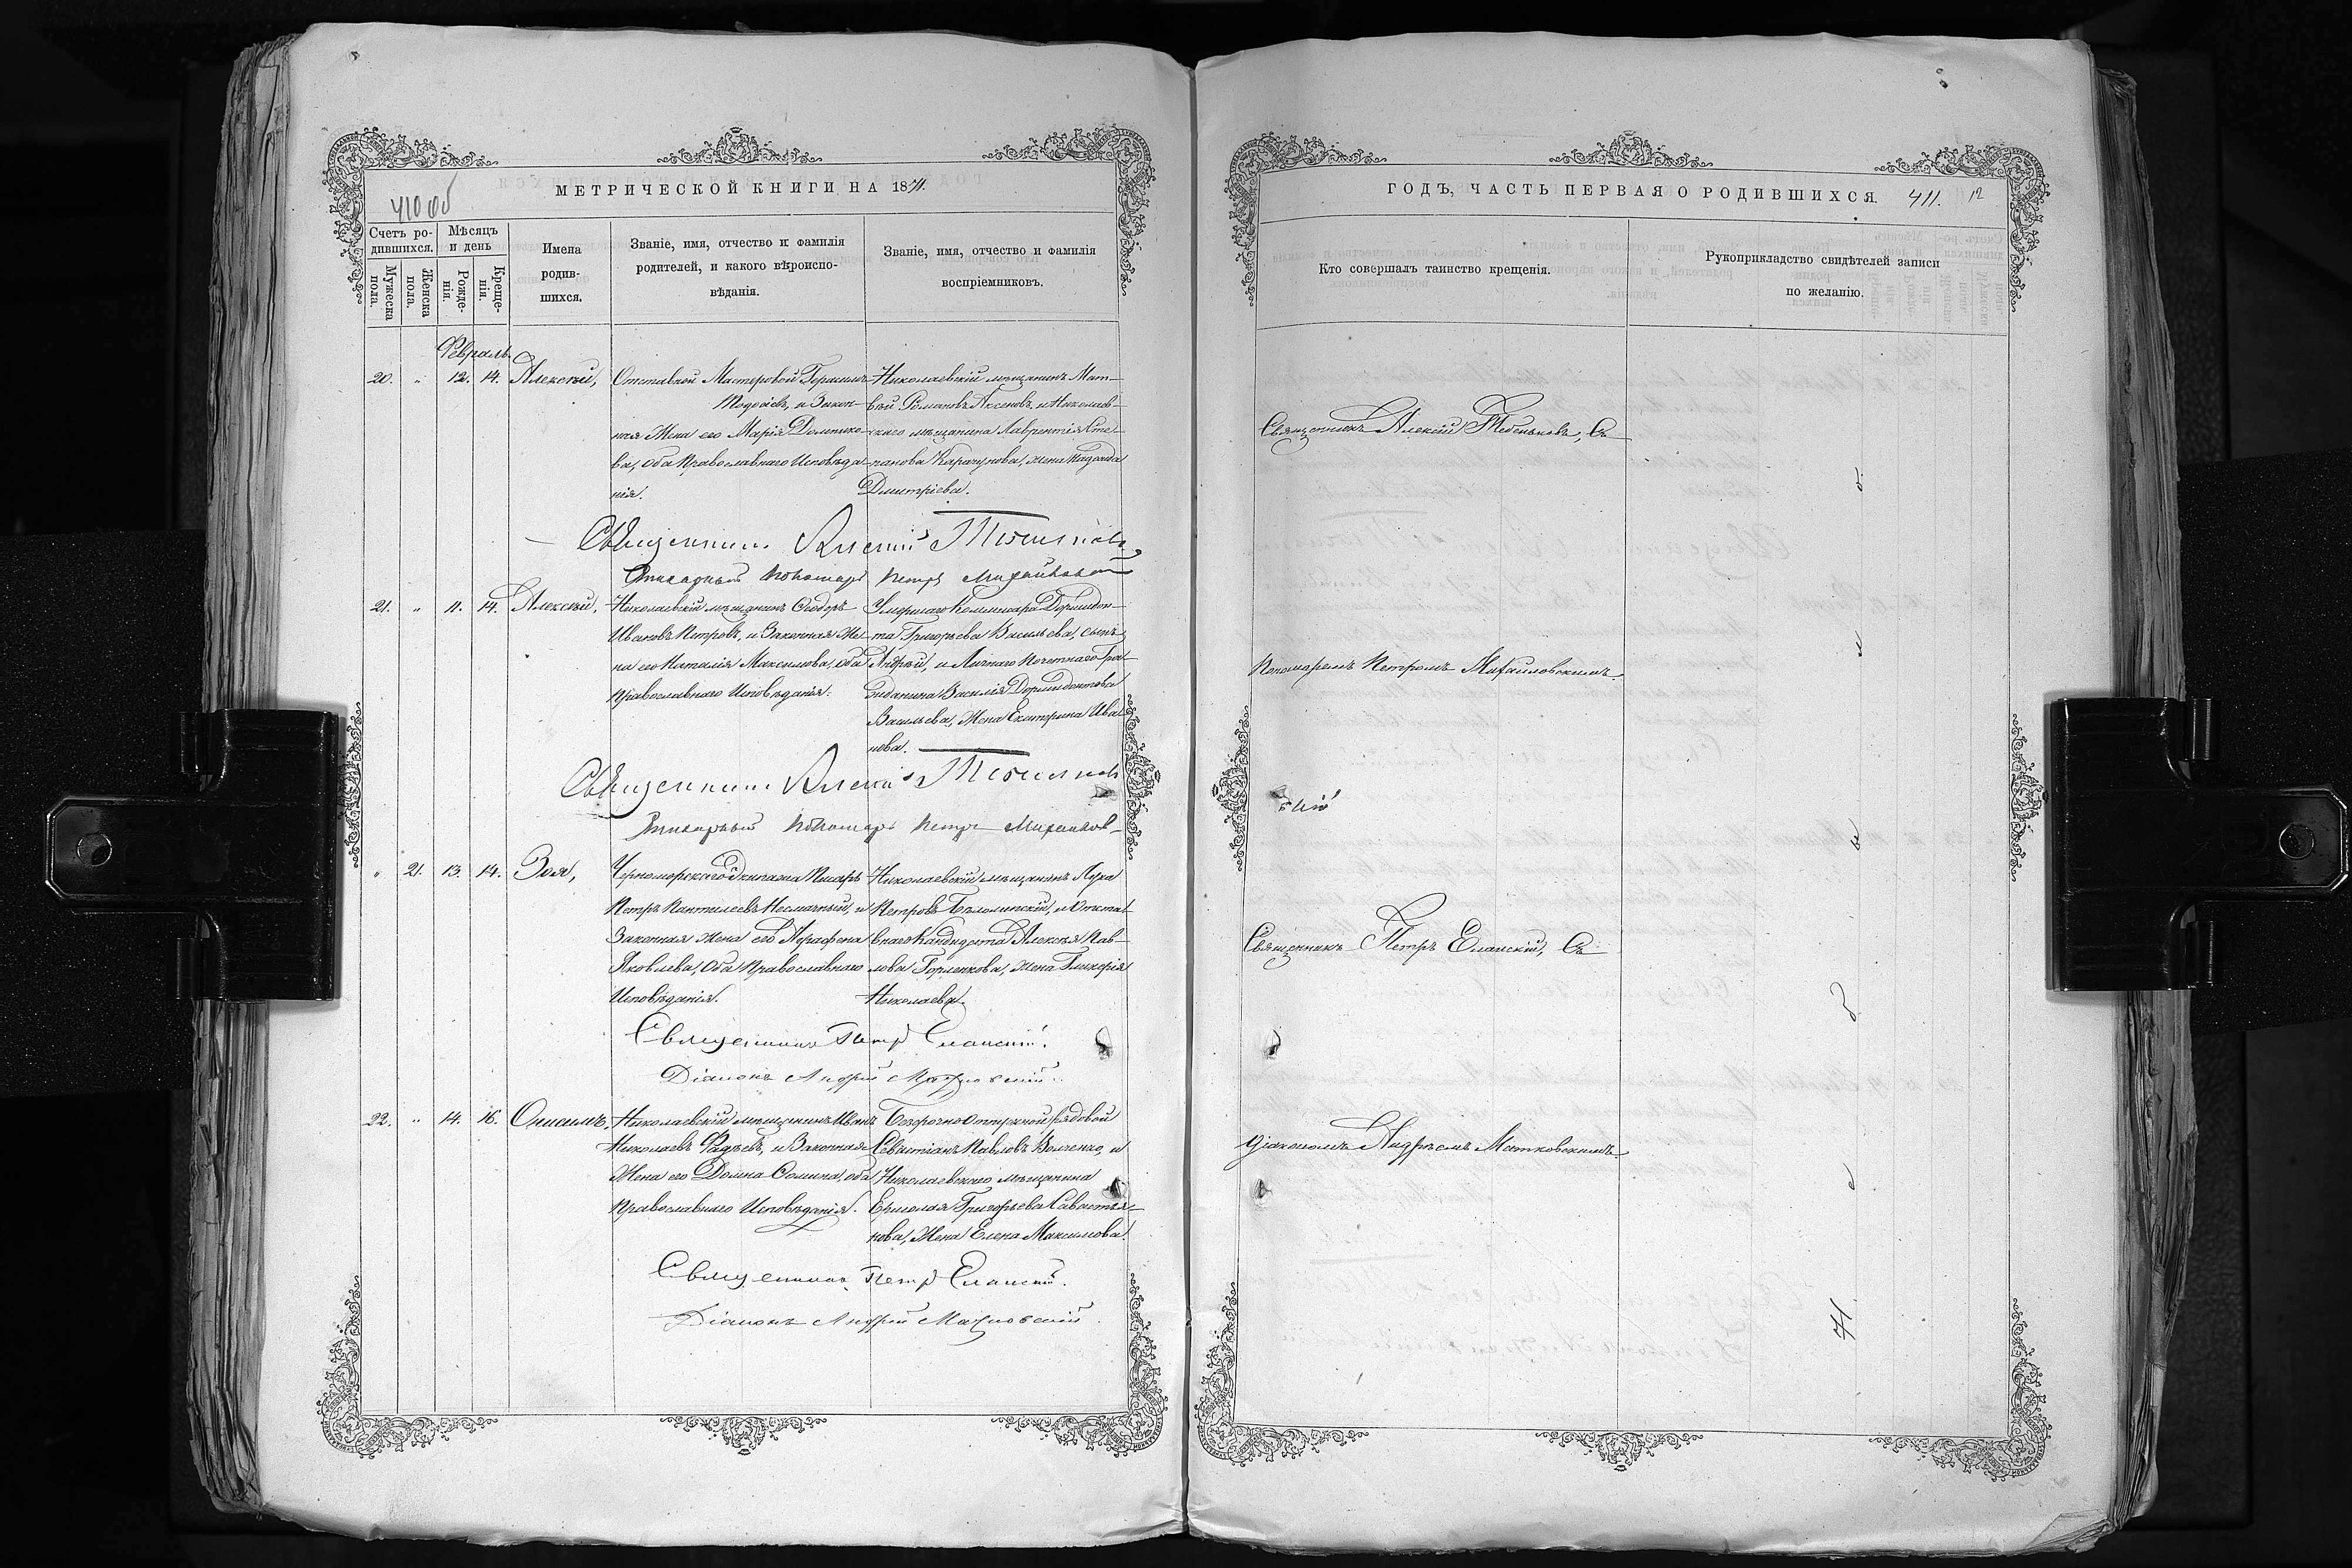 МЕТРИЧЕСКОЙ КНИГИ НА 1871.
410 об
Счетъ родившихся.
Мужеска пола.
Женска пола.
Мѣсяцъ и день
Рожденія.
Крещенія.
Имена родившихся.
Званіе, имя, отчество и фамилія родителей, и какого вѣроисповѣданія.
Званіе, имя, отчество и фамилія воспріемниковъ.
Февраль
20. " 12. 14. Алексѣй,
Отставной Мастеровой Герасимъ
и Закон-
ная Жена его Марія
ва, оба Православнаго Исповѣда-
нія.
Николаевскій мѣщанинъ Мат-
вѣй Романовъ Аксеновъ, и Николаев-
скаго мѣщанина Лаврентія Сте-
панова Карачунова, жена Надежда
Дмитріева.
Священникъ Алексій
Пономарь Петръ Михайловскій
21. " 11. 14. Алексѣй,
Николаевскій мѣщанинъ Ѳеодоръ
Ивановъ Петровъ, и Законная Же-
на его Наталія Максимова, оба
Православнаго Исповѣданія.
Умершаго Дормидон-
та Григорьева Васильева, сынъ
Андрей, и Личнаго Почетнаго Гра-
жданина Василія Дормидонтова
Васильева, Жена Екатерина Ива-
нова.
Священникъ Алексій
Пономарь Петръ Михайлов-
" 21. 13. 14. Зоя,
Черноморскаго Экипажа Писарь
Петръ Пантелеевъ и
Законная жена его Параскева
Яковлева, Оба Православнаго
Исповѣданія.
Николаевскій мѣщанинъ Лука
Петровъ и Отстав-
наго Кандидата Алексѣя Пав-
лова Горленкова, жена Гликерія
Николаева.
Священникъ Петръ Еланскій.
Діаконъ Андрей Матковскій.
22. " 14. 16. Онисимъ,
Николаевскій мѣщанинъ Иванъ
Николаевъ Фадѣевъ, и Законная
Жена его Домна Ѳомина, оба
Православнаго Исповѣданія.
Безсрочно отпускной рядовой
Севастіанъ Павловъ Волченко, и
Николаевскаго мѣщанина
Ермолая Григорьева Савостья-
нова, Жена Елена Максимова.
Священникъ Петръ Еланскій.
Діаконъ Андрей Матковскій.
ГОДЪ, ЧАСТЬ ПЕРВАЯ О РОДИВШИХСЯ.
411. 12
Кто совершалъ таинство крещенія.
Рукоприкладство свидѣтелей записи по желанію.
Священникъ Алексій Тебеньковъ, Съ
Пономаремъ Петромъ Михайловскимъ.
скій
Священникъ Петръ Еланскій, Съ
Діакономъ Андреемъ Матковскимъ.